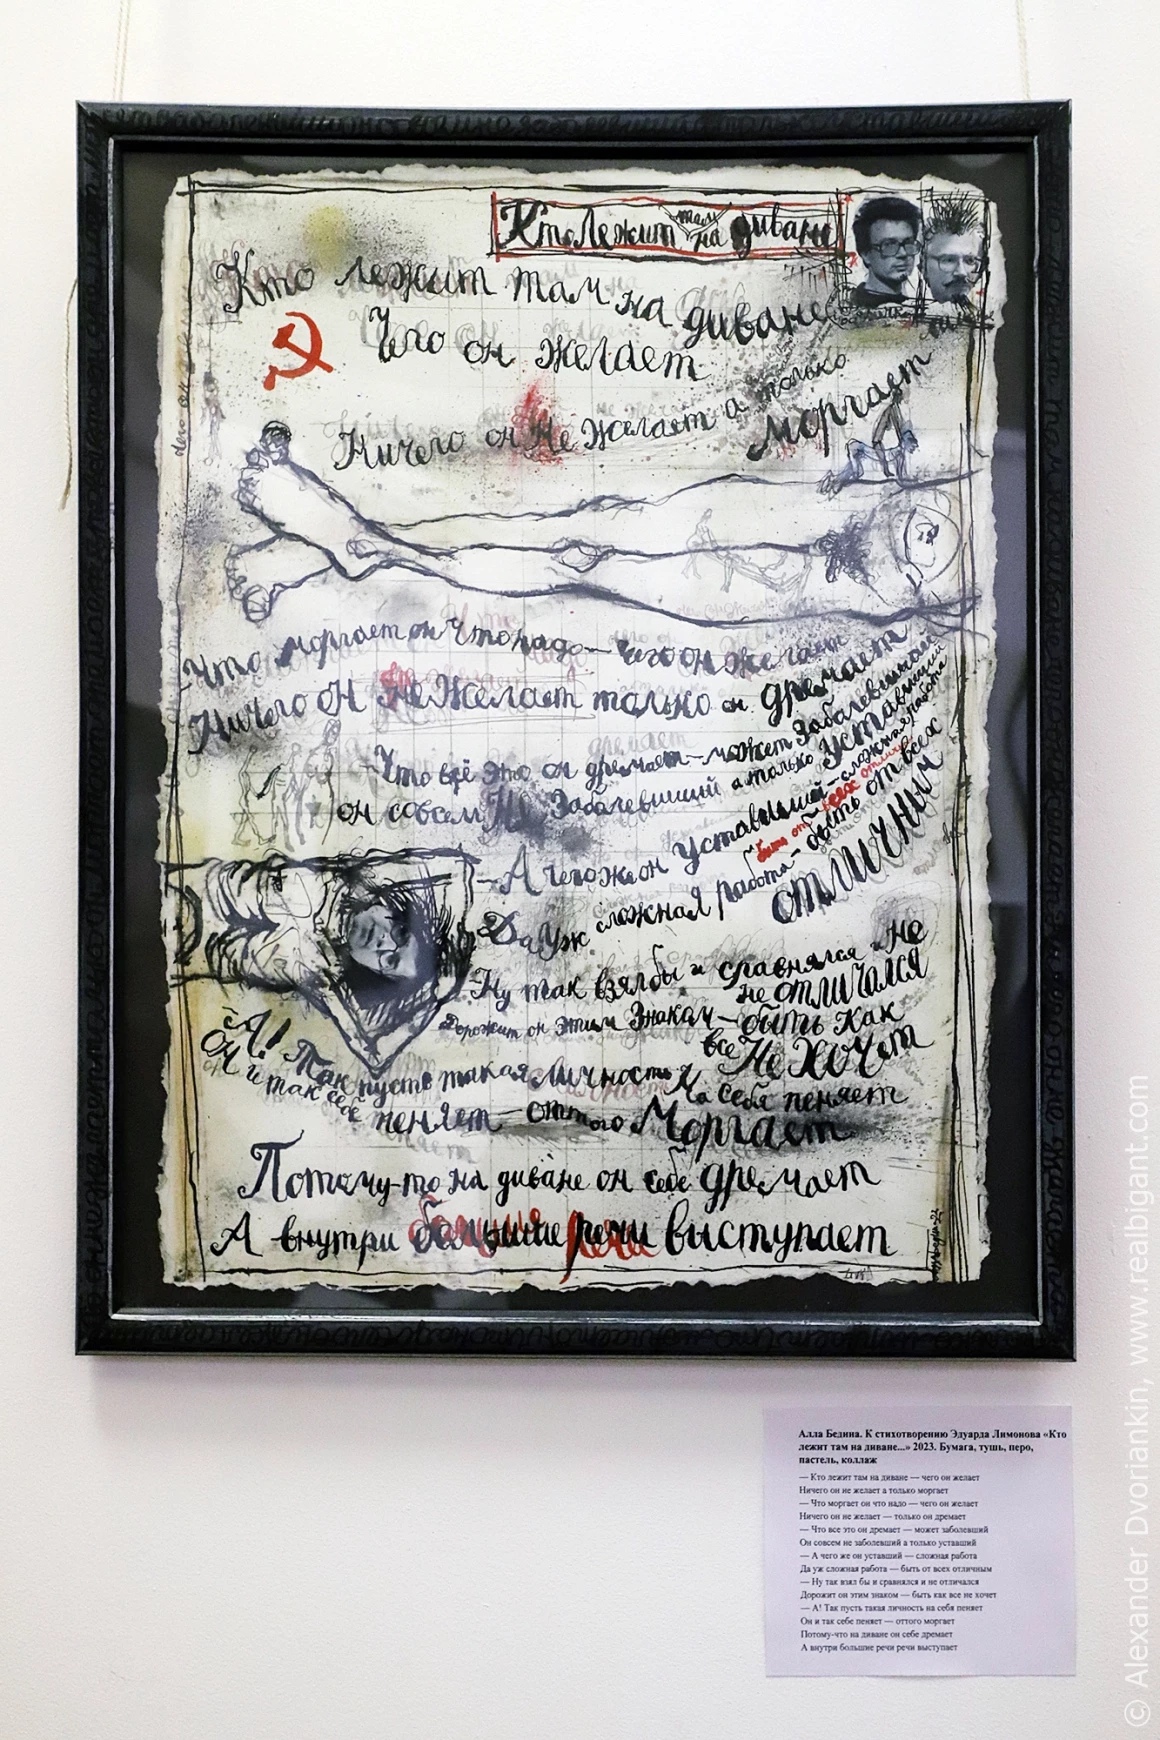 Кто Лежит там на диване
Кто лежит там на диване
Чего он желает
Ничего он Не Желает а только
моргает
Что моргает он Что надо — чего он желает
Ничего он не Желает только он дремает
— Что всё это он дремает — может заболевший
он совсем Не Заболевший а только уставший
— А чего же он уставший — сложная работа
быть от всех отличн
Да уж сложная работа — быть от всех
отличным
Ну так взял бы и сравнялся и не
не отличался
Дорожит он этим Знаком — быть как
все Не хочет
— А! Так пусть такая личность На себя пеняет
Он и так себе пеняет — оттого Моргает
Потому-то на диване он себе дремает
А внутри большие речи выступает
Алла Бедина. К стихотворению Эдуарда Лимонова «Кто
лежит там на диване...» 2023. Бумага, тушь, перо,
пастель, коллаж
— Кто лежит там на диване — чего он желает
Ничего он не желает а только моргает
— Что моргает он что надо — чего он желает
Ничего он не желает — только он дремает
— Что все это он дремает — может заболевший
Он совсем не заболевший а только уставший
— А чего же он уставший — сложная работа
Да уж сложная работа — быть от всех отличным
— Ну так взял бы и сравнялся и не отличался
Дорожит он этим знаком — быть как все не хочет
— А! Так пусть такая личность на себя пеняет
Он и так себе пеняет — оттого моргает
Потому-что на диване он себе дремает
А внутри большие речи речи выступает
© Alexander Dvoriankin, www.realbigant.com